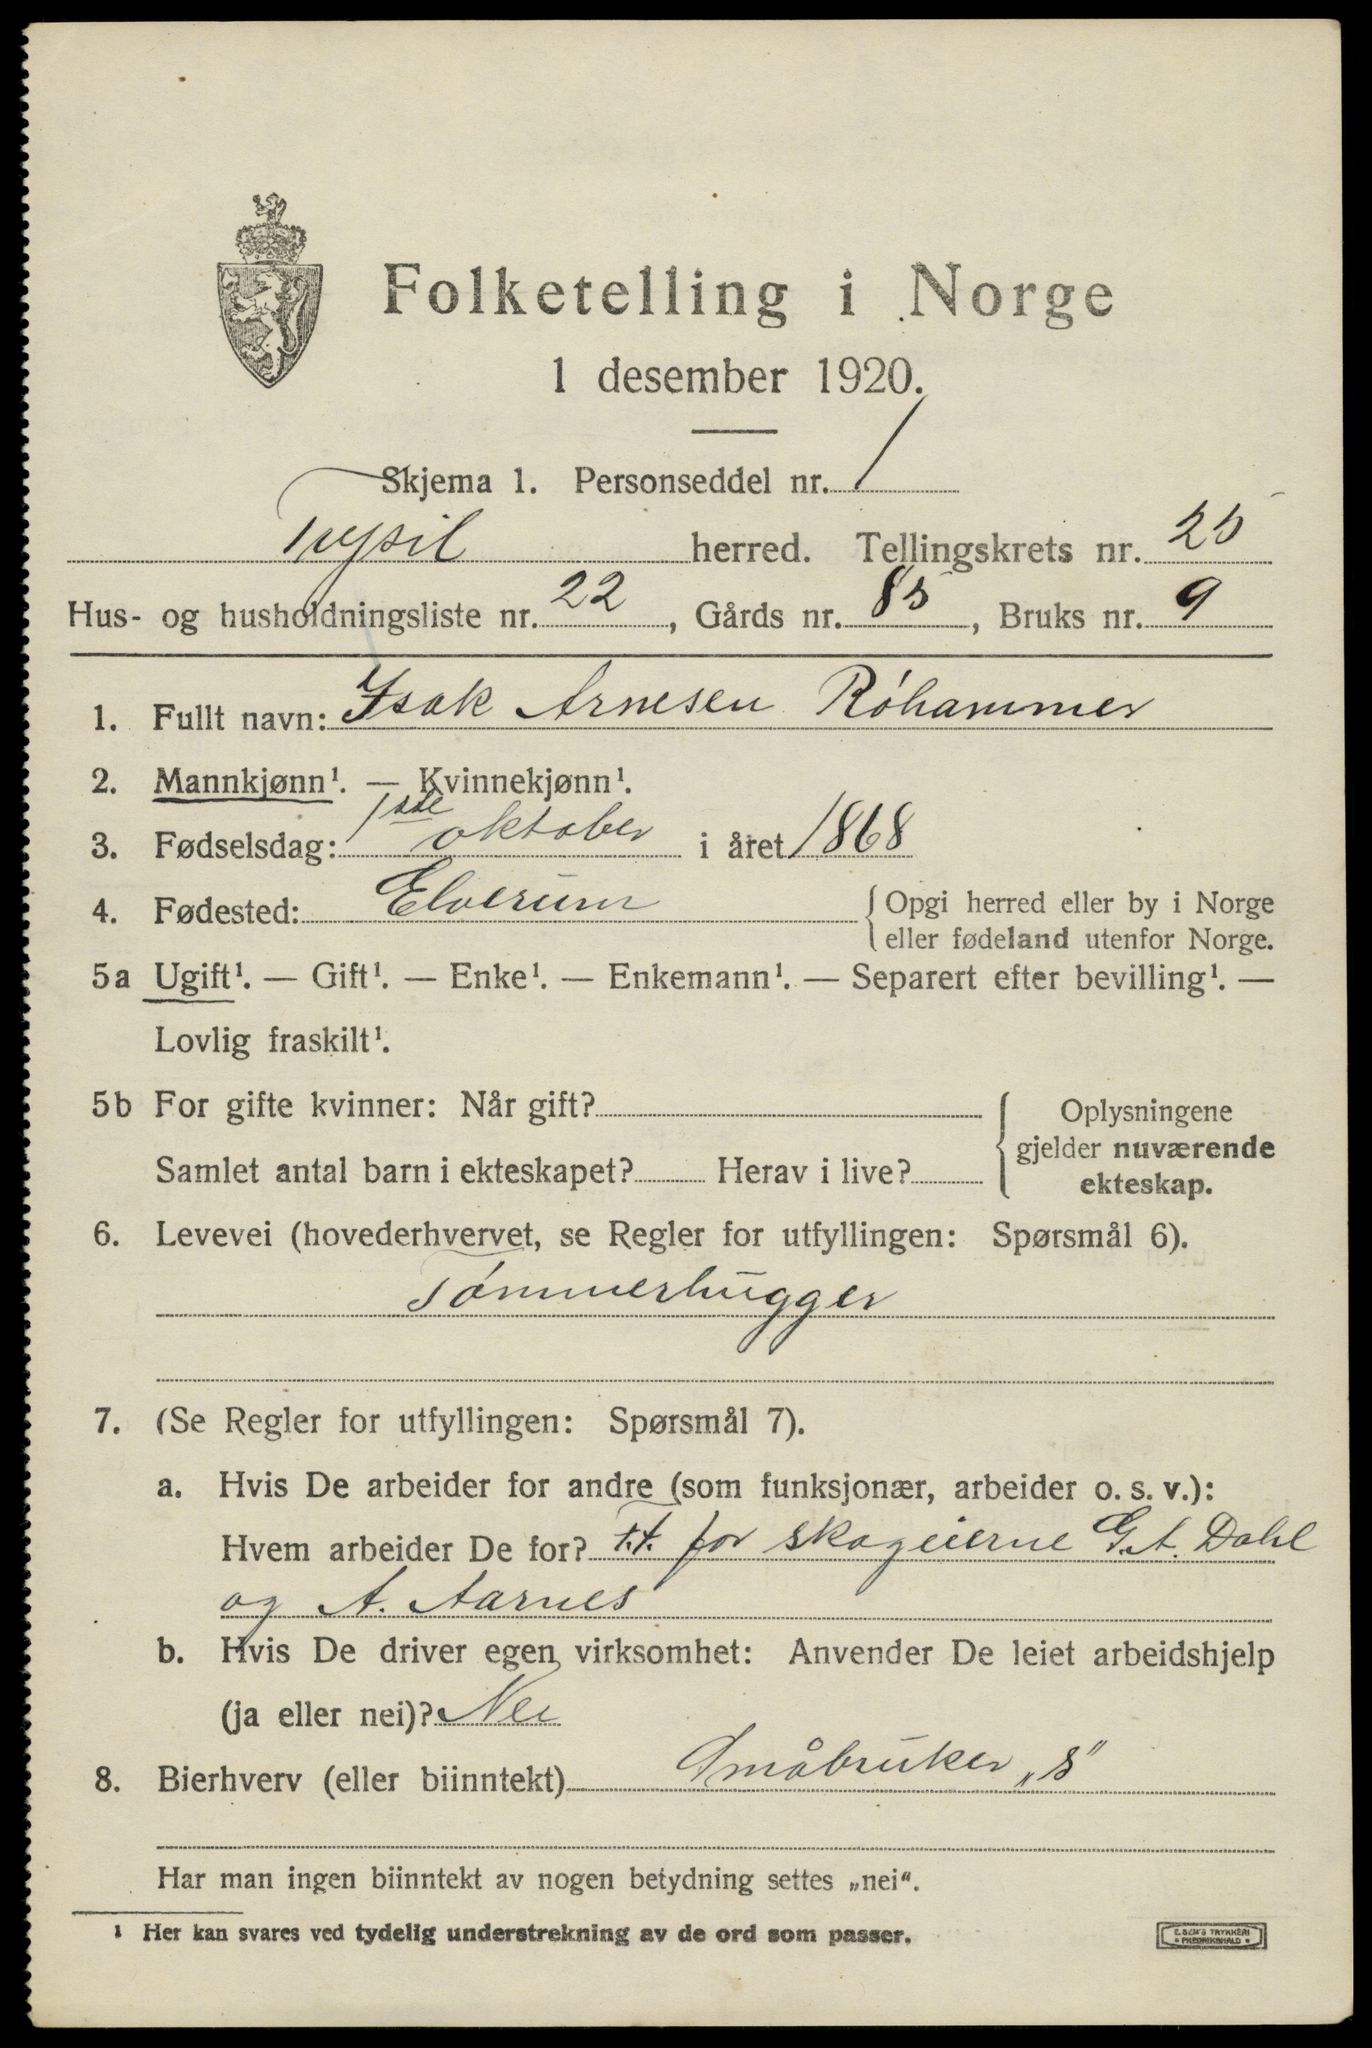 Folketelling i Norge
1 desember 1920.
Skjema 1. Personseddel nr. 1
Trysil herred. Tellingskrets nr. 25
Hus- og husholdningsliste nr. 22, Gårds nr. 85, Bruks nr. 9
1. Fullt navn: Isak Arnesen Róhammer
2. Mannkjønn¹. — Kvinnekjønn¹.
3. Fødselsdag: 1ste oktober i året 1868
4. Fødested: Elverum { Opgi herred eller by i Norge
eller fødeland utenfor Norge.
5a Ugift¹. — Gift¹. — Enke¹. — Enkemann¹. — Separert efter bevilling¹. —
Lovlig fraskilt¹.
5b For gifte kvinner: Når gift? { Oplysningene
gjelder nuværende
Samlet antal barn i ekteskapet? Herav i live?
ekteskap.
6. Levevei (hovederhvervet, se Regler for utfyllingen: Spørsmål 6).
Tómmerhugger
7. (Se Regler for utfyllingen: Spørsmål 7).
a. Hvis De arbeider for andre (som funksjonær, arbeider o. s. v.):
Hvem arbeider De for? for skogeierne G.A. Dahl
og A. Aarnes
b. Hvis De driver egen virksomhet: Anvender De leiet arbeidshjelp
(ja eller nei)? Nei
8. Bierhverv (eller biinntekt) Småbruker „s"
Har man ingen biinntekt av nogen betydning settes „nei“.
¹ Her kan svares ved tydelig understrekning av de ord som passer.
E. SEM'S TRYKKERI
• FREDRIKSHALD •